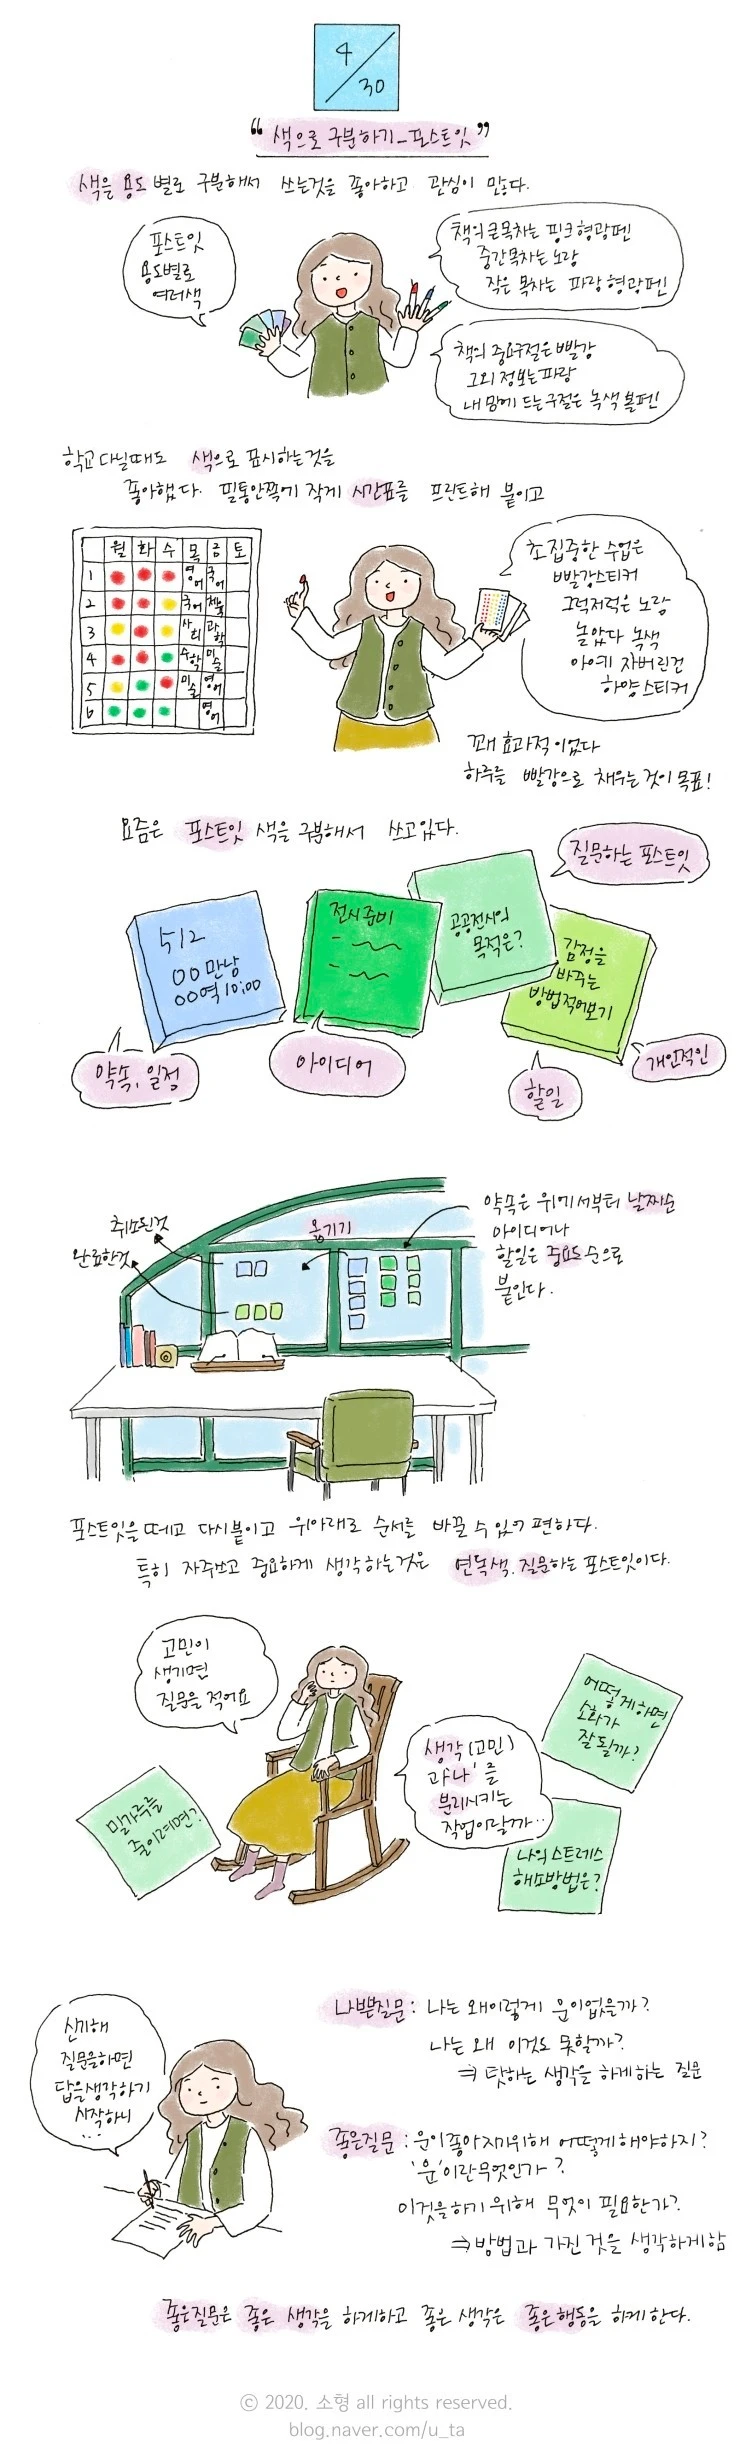 4/30
"색으로 구분하기_포스트잇"
색을 용도별로 구분해서 쓰는것을 좋아하고 관심이 많다.
포스트잇
용도별로
여러색
책의 큰목차는 핑크형광펜
중간목차는 노랑
작은 목차는 파랑 형광펜
책의 중요구절은 빨강
그외 정보는 파랑
내 맘에 드는 구절은 녹색 볼펜
학교다닐때도 색으로 표시하는것을
좋아했다. 필통안쪽에 작게 시간표를 프린트해 붙이고
월 화 수 목 금 토
1 영어 국어
2 국어 체육
3 사회 과학
4 수학 미술
5 미술 영어
6 영어
초집중한 수업은
빨강스티커
그럭저럭은 노랑
놀았다 녹색
아예 자버린건
하양스티커
꽤 효과적이었다
하루를 빨강으로 채우는것이 목표!
요즘은 포스트잇 색을 구분해서 쓰고있다.
질문하는 포스트잇
5/2
00만남
00역 10:00
전시준비
공공전시의
목적은?
감정을
바꾸는
방법적어보기
약속, 일정
아이디어
할일
개인적인
취소된것
완료한것
옮기기
약속은 위에서부터 날짜순
아이디어나
할일은 중요도순으로
붙인다.
포스트잇을 떼고 다시붙이고 위아래로 순서를 바꿀 수 있어 편하다.
특히 자주쓰고 중요하게 생각하는것은 연녹색, 질문하는 포스트잇이다.
고민이
생기면
질문을 적어요
생각(고민)
과'나'를
분리시키는
작업이랄까..
어떻게하면
소화가
잘될까?
밀가루를
줄이려면?
나의 스트레스
해소방법은?
신기해
질문을하면
답을생각하기
시작하니
...
나쁜질문: 나는 왜이렇게 운이없을까?
나는 왜 이것도 못할까?
⇒ 탓하는 생각을 하게하는 질문
좋은질문: 운이좋아지기위해 어떻게해야하지?
'운'이란무엇인가?
이것을하기 위해 무엇이 필요한가?
⇒ 방법과 가진 것을 생각하게함
좋은질문은 좋은 생각을 하게하고 좋은 생각은 좋은행동을 하게 한다.
© 2020. 소형 all rights reserved.
blog.naver.com/u_ta